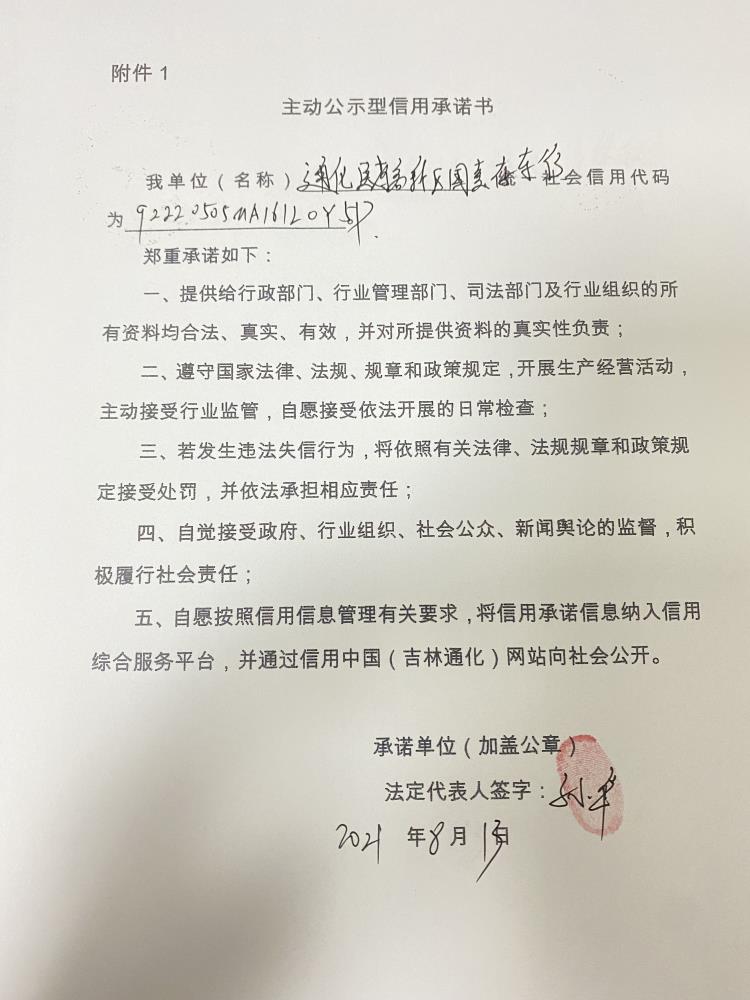 附件 1
主动公示型信用承诺书
我单位（名称）通化 社会信用代码
为 92220505MA161L0Y5P.
郑重承诺如下：
一、提供给行政部门、行业管理部门、司法部门及行业组织的所
有资料均合法、真实、有效，并对所提供资料的真实性负责；
二、遵守国家法律、法规、规章和政策规定，开展生产经营活动，
主动接受行业监管，自愿接受依法开展的日常检查；
三、若发生违法失信行为，将依照有关法律、法规规章和政策规
定接受处罚，并依法承担相应责任；
四、自觉接受政府、行业组织、社会公众、新闻舆论的监督，积
极履行社会责任；
五、自愿按照信用信息管理有关要求，将信用承诺信息纳入信用
综合服务平台，并通过信用中国（吉林通化）网站向社会公开。
承诺单位（加盖公章）
法定代表人签字：孙
2021 年 8 月 13 日